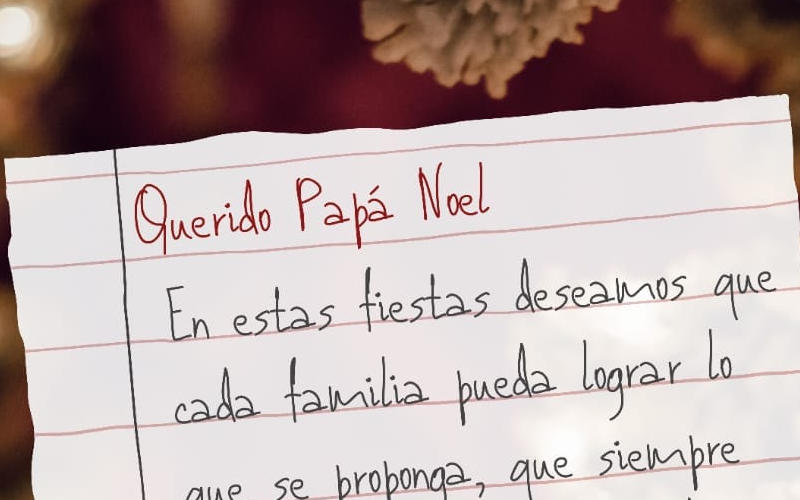 Querido Papá Noel
En estas fiestas deseamos que
cada familia pueda lograr lo
que se proponga, que siempre